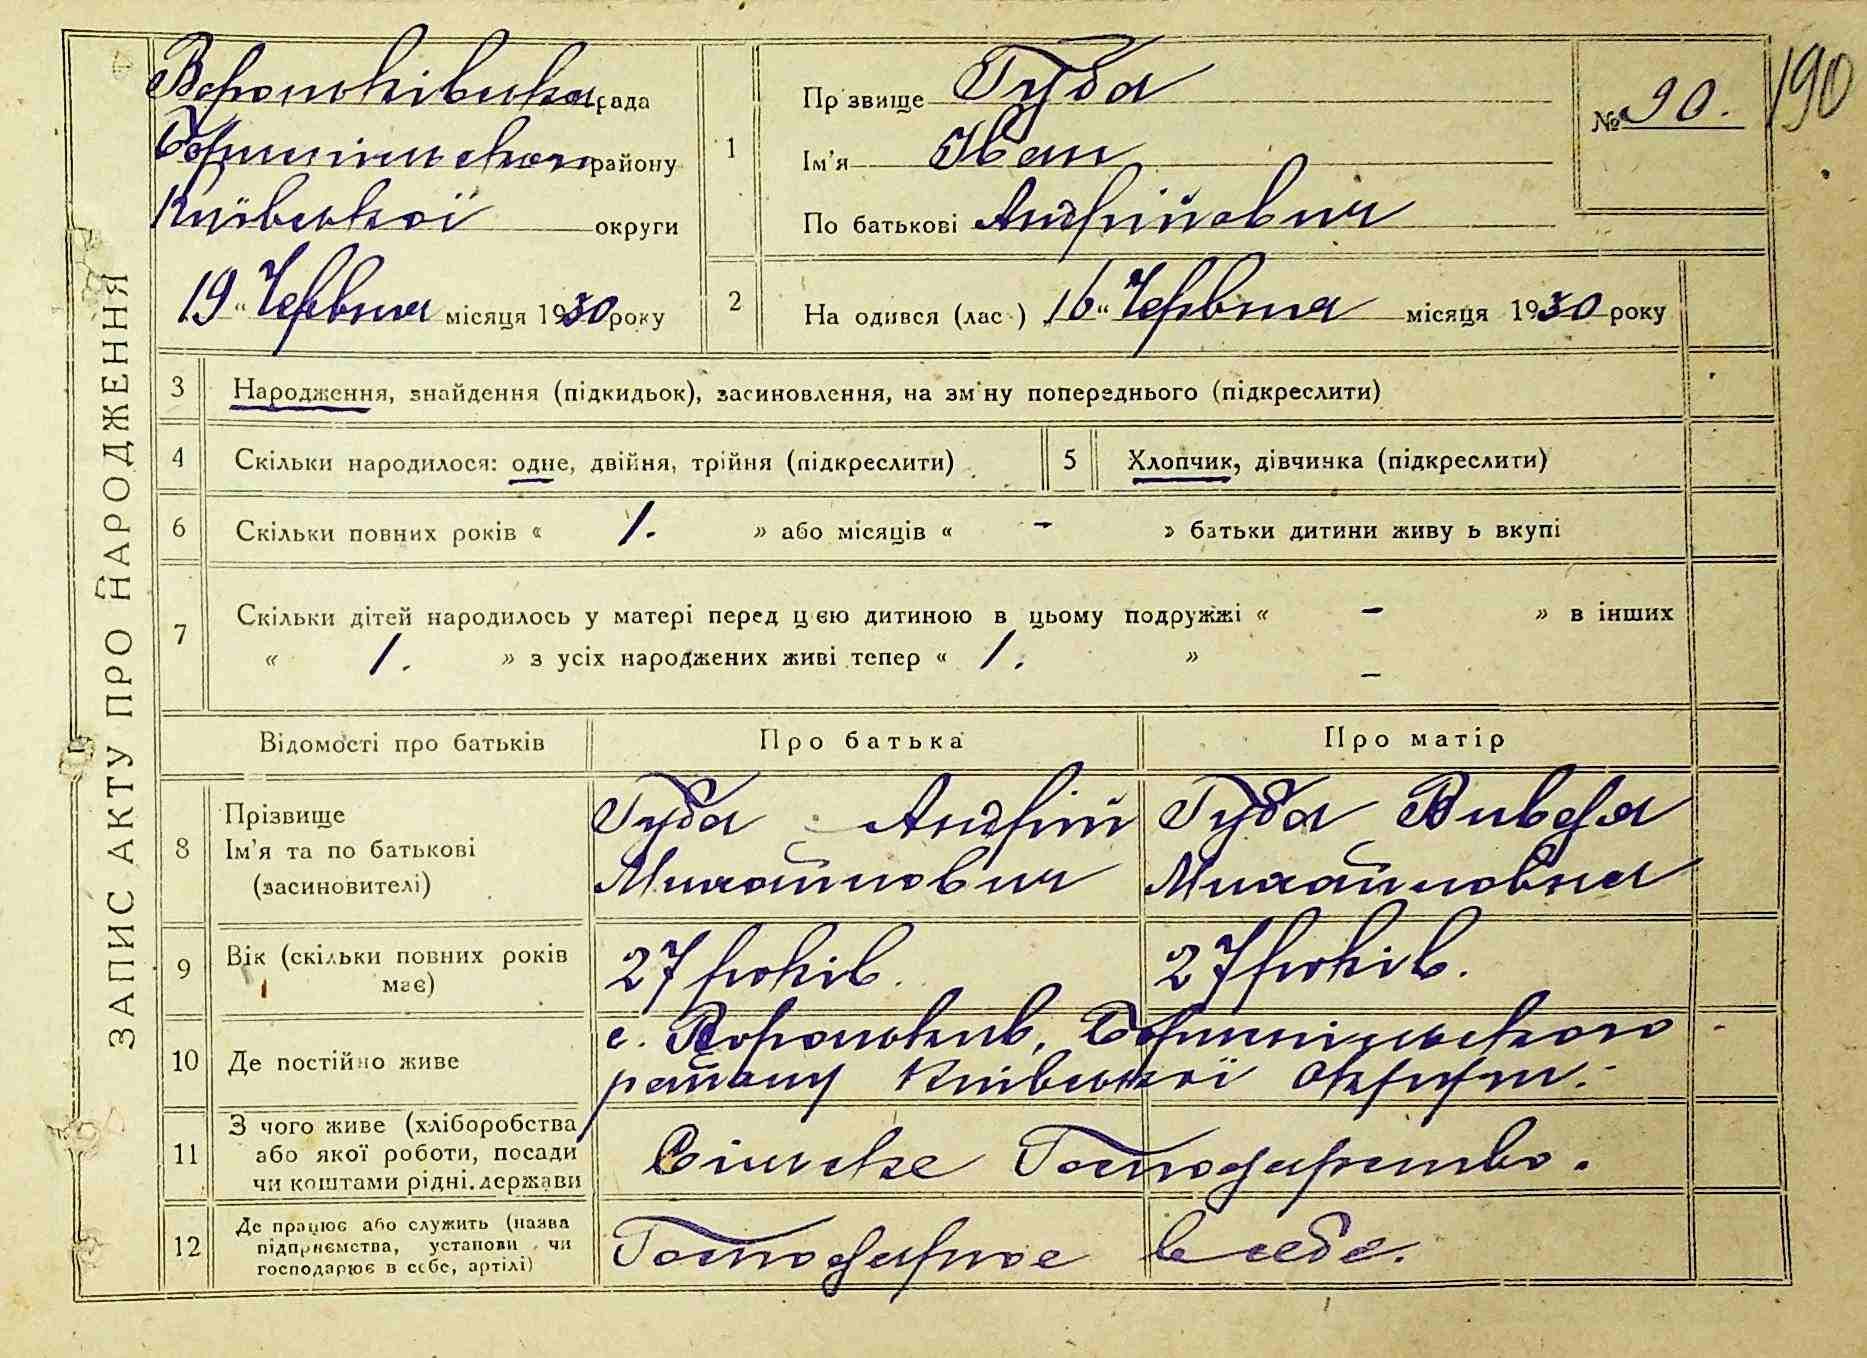 ЗАПИС АКТУ ПРО НАРОДЖЕННЯ
Вороньківська рада
Бориспільського району
Київської округи
19 „ Червня місяця 1930 року
1
Прізвище Губа
Ім'я Іван
По батькові Андрійович
№ 90.
190
2
На одився (лас ) „16“ Червня місяця 1930 року
3 Народження, знайдення (підкидьок), засиновлення, на зміну попереднього (підкреслити)
4 Скільки народилося: одне, двійня, трійня (підкреслити)
5 Хлопчик, дівчинка (підкреслити)
6 Скільки повних років « 1. » або місяців « - » батьки дитини живу ь вкупі
7 Скільки дітей народилось у матері перед цією дитиною в цьому подружжі « - » в інших
« 1. » з усіх народжених живі тепер « 1. » -
Відомості про батьків Про батька Про матір
8 Прізвище
Ім'я та по батькові
(засиновителі)
Губа Андрій
Михайлович
Губа Вивдя
Михайловна
9 Вік (скільки повних років
має)
27 років.
27 років.
10 Де постійно живе
с. Вороньків, Бориспільського
району Київської округи.
11 З чого живе (хліборобства
або якої роботи, посади
чи коштами рідні. держави
Сільське Господарство.
12 Де працює або служить (назва
підприємства, установи чи
господарює в себе, артілі)
Господарює в себе.